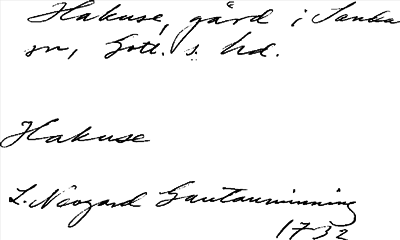 Hakuse, gård i Sanda
sn, Gotl. s. hd.
Hakuse
L. Neogard Gautauminning
1732